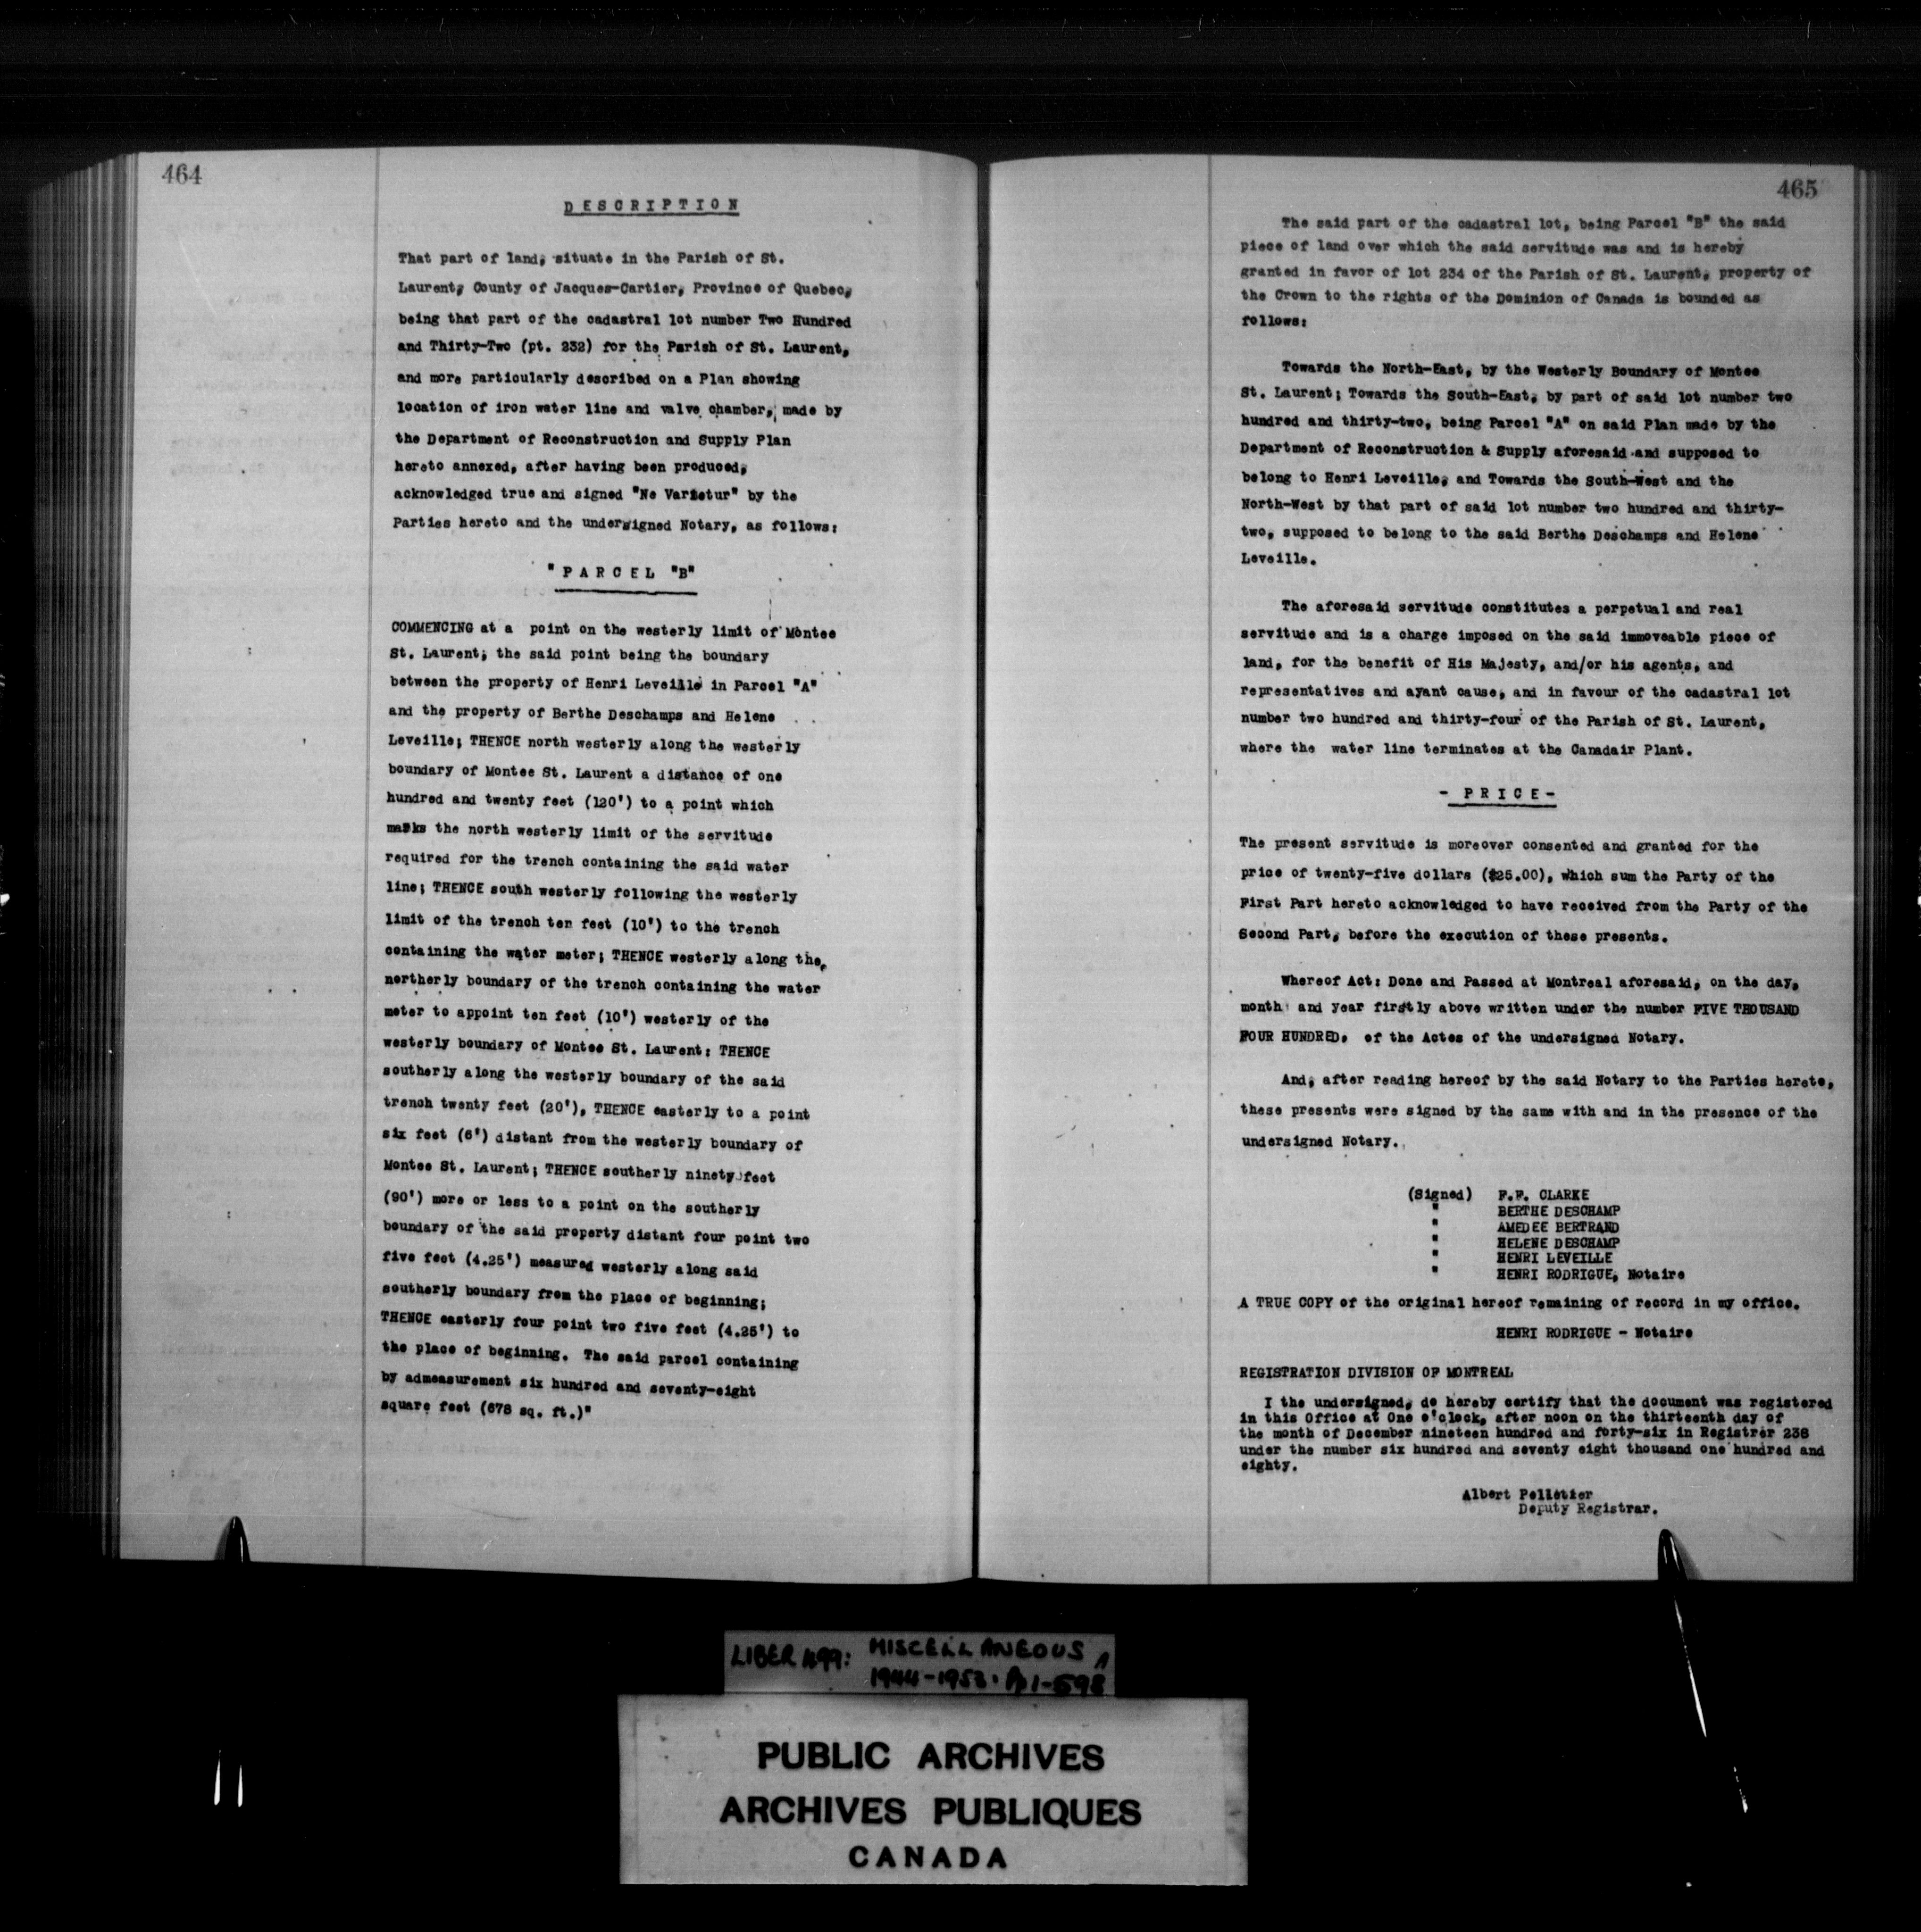 464
DESCRIPTION
That part of land, situate in the Parish of St.
Laurent, County of Jacques-Cartier, Province of Quebec,
being that part of the cadastral lot number Two Hundred
and Thirty-Two (pt. 232) for the Parish of St. Laurent,
and more particularly described on a Plan showing
location of iron water line and valve chamber, made by
the Department of Reconstruction and Supply Plan
hereto annexed, after having been produced,
acknowledged true and signed "Ne Varietur" by the
Parties hereto and the undersigned Notary, as follows:
"PARCEL "B"
COMMENCING at a point on the westerly limit of Montee
St. Laurent; the said point being the boundary
between the property of Henri Leveille in Parcel "A"
and the property of Berthe Deschamps and Helene
Leveille; THENCE north westerly along the westerly
boundary of Montee St. Laurent a distance of one
hundred and twenty feet (120') to a point which
marks the north westerly limit of the servitude
required for the trench containing the said water
line; THENCE south westerly following the westerly
limit of the trench ten feet (10') to the trench
containing the water meter; THENCE westerly along the
northerly boundary of the trench containing the water
meter to appoint ten feet (10') westerly of the
westerly boundary of Montee St. Laurent: THENCE
southerly along the westerly boundary of the said
trench twenty feet (20'), THENCE easterly to a point
six feet (6') distant from the westerly boundary of
Montee St. Laurent; THENCE southerly ninety feet
(90') more or less to a point on the southerly
boundary of the said property distant four point two
five feet (4.25') measured westerly along said
southerly boundary from the place of beginning;
THENCE easterly four point two five feet (4.25') to
the place of beginning. The said parcel containing
by admeasurement six hundred and seventy-eight
square feet (678 sq. ft.)"
465
The said part of the cadastral lot, being Parcel "B" the said
piece of land over which the said servitude was and is hereby
granted in favor of lot 234 of the Parish of St. Laurent, property of
the Crown to the rights of the Dominion of Canada is bounded as
follows:
Towards the North-East, by the Westerly Boundary of Montee
St. Laurent; Towards the South-East, by part of said lot number two
hundred and thirty-two, being Parcel "A" on said Plan made by the
Department of Reconstruction & Supply aforesaid and supposed to
belong to Henri Leveille, and Towards the South-West and the
North-West by that part of said lot number two hundred and thirty-
two, supposed to belong to the said Berthe Deschamps and Helene
Leveille.
The aforesaid servitude constitutes a perpetual and real
servitude and is a charge imposed on the said immoveable piece of
land, for the benefit of His Majesty, and/or his agents, and
representatives and ayant cause, and in favour of the cadastral lot
number two hundred and thirty-four of the Parish of St. Laurent,
where the water line terminates at the Canadair Plant.
- PRICE-
The present servitude is moreover consented and granted for the
price of twenty-five dollars ($25.00), which sum the Party of the
First Part hereto acknowledged to have received from the Party of the
Second Part, before the execution of these presents.
Whereof Act: Done and Passed at Montreal aforesaid, on the day,
month and year firstly above written under the number FIVE THOUSAND
FOUR HUNDRED, of the Actes of the undersigned Notary.
And, after reading hereof by the said Notary to the Parties hereto,
these presents were signed by the same with and in the presence of the
undersigned Notary.
(Signed) F.F. CLARKE
" BERTHE DESCHAMP
" AMEDEE BERTRAND
" HELENE DESCHAMP
" HENRI LEVEILLE
" HENRI RODRIGUE, Notaire
A TRUE COPY of the original hereof remaining of record in my office.
HENRI RODRIGUE - Notaire
REGISTRATION DIVISION OF MONTREAL
I the undersigned, do hereby certify that the document was registered
in this Office at One o'clock, after noon on the thirteenth day of
the month of December nineteen hundred and forty-six in Registrer 238
under the number six hundred and seventy eight thousand one hundred and
eighty.
Albert Pelletier
Deputy Registrar.
LIBER 499: MISCELLANEOUS
1944-1953. Pp 1-598
PUBLIC ARCHIVES
ARCHIVES PUBLIQUES
CANADA